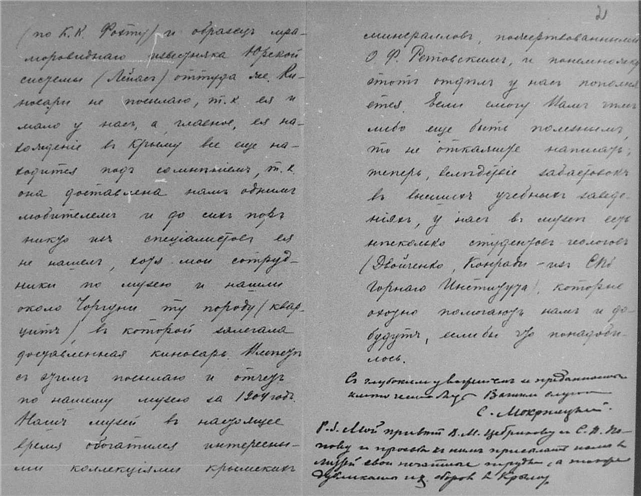 (по К.К. Фохту) и образец мра-
моровиднаго известняка Юрской
системы (Лейас) оттуда же. Ки-
новари не посылаю, т.к. ея и
мало у насъ, а, главное, ея на-
хождение въ Крыму все еще на-
ходится подъ сомнѣнiем, т.к.
она доставлена намъ однимъ
любителемъ и до сихъ поръ
никто изъ спецiалистовъ ея
не нашелъ, хотя мои сотруд-
ники по музею и нашли
около Чоргуни ту породу (квар-
цитъ), въ которой залегала
доставленная киноварь. Вместѣ
съ этимъ посылаю и отчетъ
по нашему музею за 1904 годъ
Нашъ музей въ настоящее
время обогатился интересны-
ми коллекцiями крымскихъ
2
минераловъ, пожертвованными
О.Ф. Ретовскимъ, и понемногу
этотъ отдѣлъ у насъ пополня-
ется Если смогу Вамъ чѣмъ
либо еще быть полезнымъ,
то не откажите написать;
теперь, вслѣдствiе забастовокъ
въ высшихъ учебныхъ заведе-
нiяхъ, у насъ въ музеѣ есть
нѣсколько студентовъ геологовъ
(Двойченко, Конради - изъ СПБ
Горнаго Института), которые
охотно помогаютъ намъ и до-
будутъ, если бы что понадоби-
лось.
Съ глубокимъ уваженiемъ и преданностью
Вашимъ слугою
С. Мокржецкiй.
P.S. Мой привѣтъ В.М. Цебрикову и С.П. По-
пову и просьба къ нимъ присылать намъ въ
музей свои печатные труды, а также
дубликаты изъ сборовъ въ Крыму